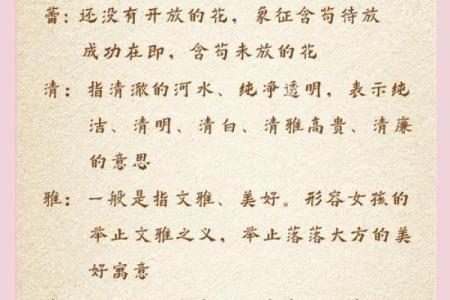 蕾：还没有开放的花，象征含苞待放
成功在即，含苞未放的花
清：指清澈的河水、纯净透明，表示纯
洁、清明、清白、清雅高贵、清廉
的意思
雅：一般是指文雅、美好。形容女孩的
举止文雅之义，举止落落大方的美
好寓意